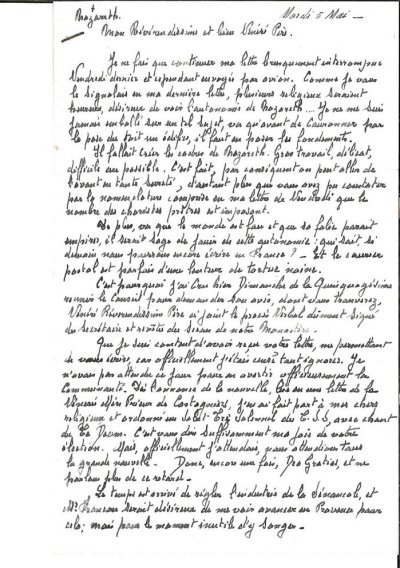 Nazareth. Mardi 5 Mai —
Mon Révérendissime et bien Vénéré Père.
Je ne fais que continuer ma lettre brusquement interrompue
Vendredi dernier et cependant envoyée par avion. Comme je vous
le signalais en ma dernière lettre, plusieurs religieux seraient
heureux, désireux de voir l'autonomie de Nazareth.... Je ne me suis
jamais emballé sur un tel sujet, vu qu'avant de couronner par
la pose du toit un édifice, il faut en poser les fondements.
Il fallait créer les cadres de Nazareth. Gros travail, délicat,
difficile au possible. C'est fait, par conséquent on peut aller de
l'avant en toute sûreté, d'autant plus que vous avez pu constater
par la nomenclature comprise en ma lettre de Vendredi que le
nombre des choristes prêtres est imposant.
De plus, vu que le monde est fou et que sa folie paraît
empirer, il serait sage de jouir de cette autonomie: qui sait, si
demain nous pourrons encore écrire en France? — Et le courrier
postal est parfois d'une lenteur de tortue naine.
C'est pourquoi j'ai cru bien Dimanche de la Quinquagésime
réunir le Conseil pour demander son avis, dont vous trouverez,
Vénéré Révérendissime Père ci joint le procès Verbal dûment signé
du Secrétaire et revêtu du sceau de notre Monastère.
Que je suis content d'avoir reçu votre lettre, me permettant
de vous écrire, car officiellement j'étais censé tout ignorer. Je
n'avais pas attendu ce jour pour en avertir officieusement la
Communauté. Dès l'annonce de la nouvelle, lue en une lettre de la
Révérende Mère Prieure de Castagniers, j'en ai fait part à mes chers
religieux et ordonné un Salut Très Solennel du T. S. S, avec chant
du Te Deum. C'est vous dire suffisamment ma joie de votre
élection. Mais, officiellement j'attendais, pour
la grande nouvelle. — Donc, encore une fois, Deo Gratias, et ne
parlons plus de ce retard. —
Le temps est arrivé de régler l'industrie de la Sénancole, et
Mr Françon serait désireux de me voir avancer en Provence pour
cela; mais pour le moment inutile d'y songer —